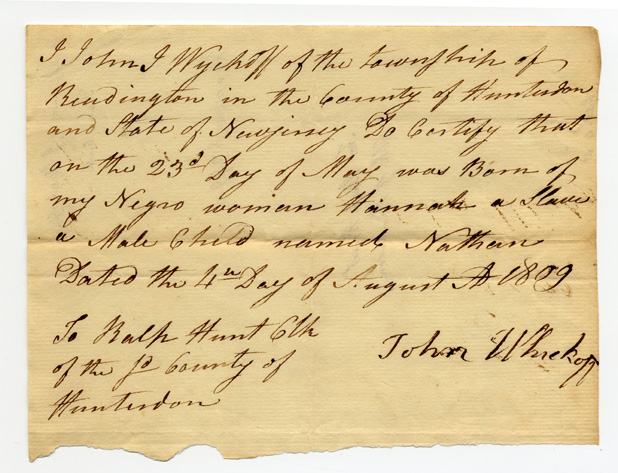 I John J Wyckoff of the township of
Readington in the County of Hunterdon
and State of Newjersey Do Certify that
on the 23d Day of May was Born of
my Negro woman Hannah a Slave
a Male Child named Nathan
Dated the 4th Day of August AD 1809
To Ralph Hunt Clk
of the sd County of
Hunterdon
John Wyckoff